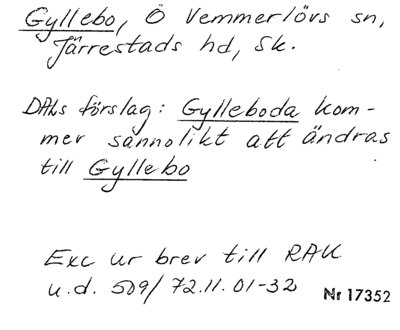 Gyllebo, Ö Vemmerlövs sn,
Järrestads hd, Sk.
DALs förslag: Gylleboda kom-
mer sannolikt att ändras
till Gyllebo
Exc ur brev till RAK
u.d. 509/72.11.01-32
Nr 17352